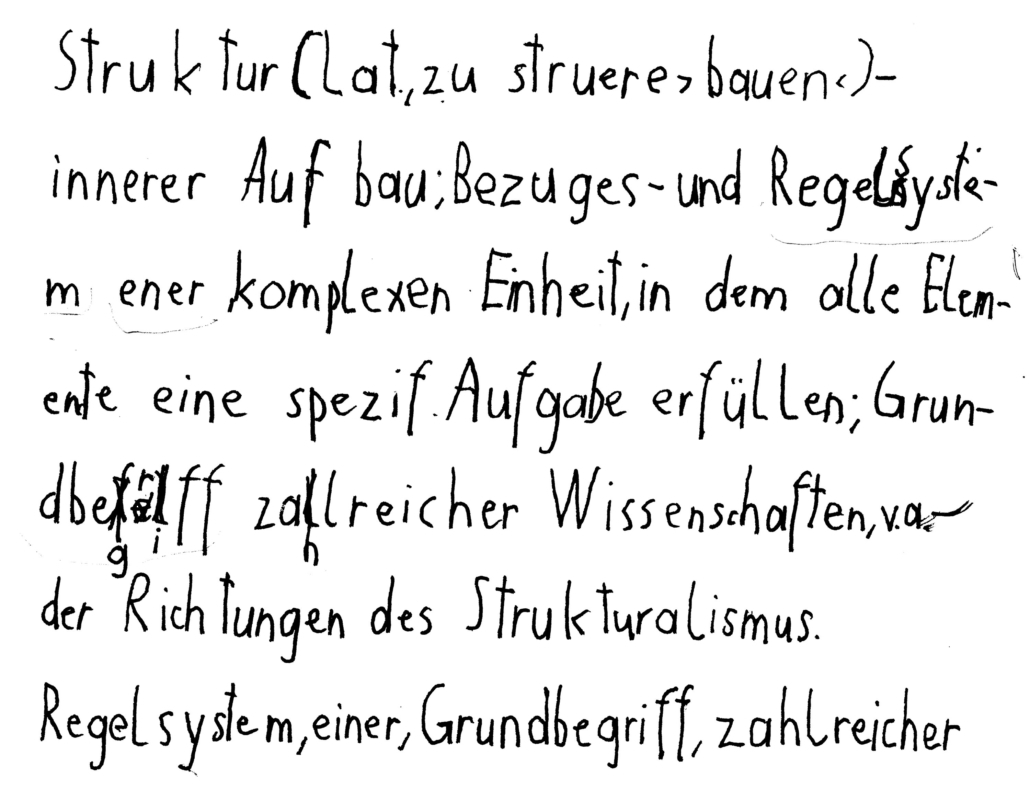 Struktur (Lat, zu struere >bauen<)-
innerer Aufbau; Bezuges- und Regelsyste-
m ener komplexen Einheit, in dem alle Elem-
ente eine spezif. Aufgabe erfüllen; Grun-
dbegriff zahlreicher Wissenschaften, v.a.
der Richtungen des Strukturalismus.
Regelsystem, einer, Grundbegriff, zahlreicher